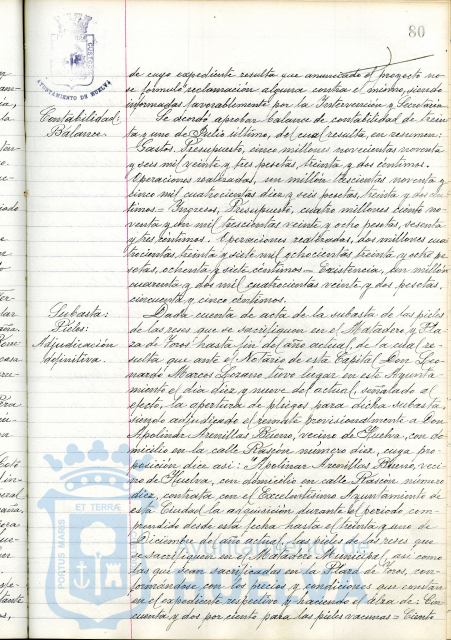 80
AYUNTAMIENTO DE HUELVA
de cuyo expediente resulta que anunciado el proyecto no
se formuló reclamación alguna contra el mismo, siendo
informadas favorablemente por la Intervención y Secretaría
Contabilidad:
Balance.
Se acordó aprobar balance de contabilidad de trein
ta y uno de Julio último, del cual resulta, en resumen:
Gastos. Presupuesto, cinco millones novecientos noventa
y seis mil veinte y tres pesetas treinta y dos céntimos.
Operaciones realizadas, un millón trescientas noventa y
cinco mil cuatrocientas diez y seis pesetas, treinta y dos cén
timos = Ingresos, Presupuesto, cuatro millones ciento no
venta y un mil trescientas veinte y ocho pesetas, sesenta
y tres céntimos. Operaciones realizadas, dos millones cua
trocientas, treinta y siete mil ochocientas treinta y ocho pe
setas, ochenta y siete céntimos = Existencia, un millón
cuarenta y dos mil cuatrocientas veinte y dos pesetas,
cincuenta y cinco céntimos.
Subasta:
Pieles:
Adjudicación
definitiva.
Dada cuenta de acta de la subasta de las pieles
de las reses que se sacrifiquen en el Matadero y Pla
za de Toros hasta fin del año actual, de la cual re
sulta que ante el Notario de esta Capital Don Leo
nardo Marcos Lozano, tuvo lugar en este Ayunta
miento el día diez y nueve del actual, señalado al
efecto, la apertura de pliegos para dicha subasta,
siendo adjudicado el remate provisionalmente a Don
Apolinar Arenillas Bueno, vecino de Huelva, con do
micilio en la calle Rascón número diez, cuya pro
posición dice así: "Apolinar Arenillas Bueno, veci
no de Huelva, con domicilio en calle Rascón número
diez, contrata con el Excelentísimo Ayuntamiento de
esta Ciudad la adquisición durante el periodo com
prendido desde esta fecha hasta el treinta y uno de
Diciembre del año actual, las pieles de las reses que
se sacrifiquen en el Matadero Municipal, así como
las que sean sacrificadas en la Plaza de Toros, con
formándose con los precios y condiciones que constan
en el expediente respectivo y haciendo el alza de: Cin
cuenta y dos por ciento para las pieles vacunas = Ciento
PORTUS MARIS ET TERRAE